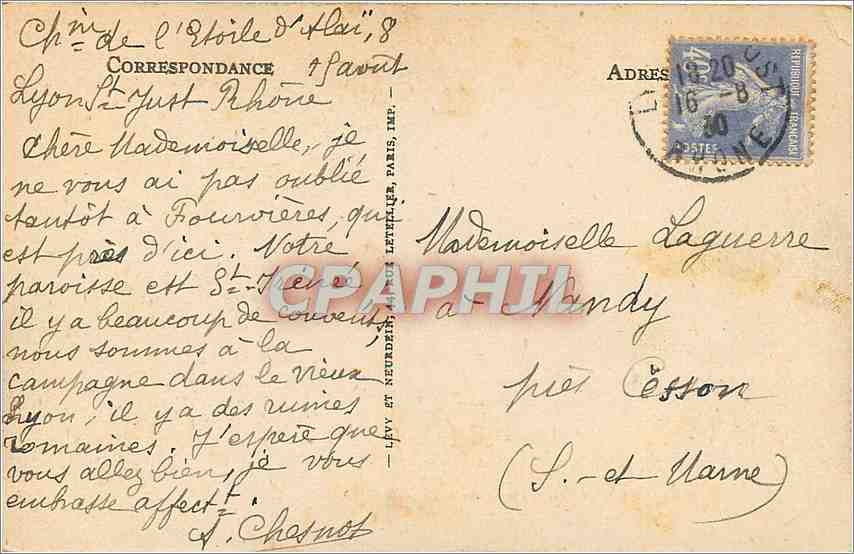 Chin de l'Etoile d'Alaï, 8
CORRESPONDANCE 15 août
Lyon St-Just Rhône
Chère Mademoiselle, je
ne vous ai pas oublié
tantôt à Fourvières, qui
est près d'ici. Notre
paroisse est St-Irénée
il y a beaucoup de couvents,
nous sommes à la
campagne dans le vieux
Lyon, il y a des ruines
romaines. J'espère que
vous allez bien, je vous
embrasse affectt.
S. Chesnot
— LÉVY ET NEURDEIN, 44, RUE LETELLIER, PARIS, IMP. —
ADRES
40c
REPUBLIQUE FRANÇAISE
POSTES
18 20
16 -8
30
RHONE
Mademoiselle Laguerre
à Nandy
près Cesson
(S.-et Marne)
CPAPHIL